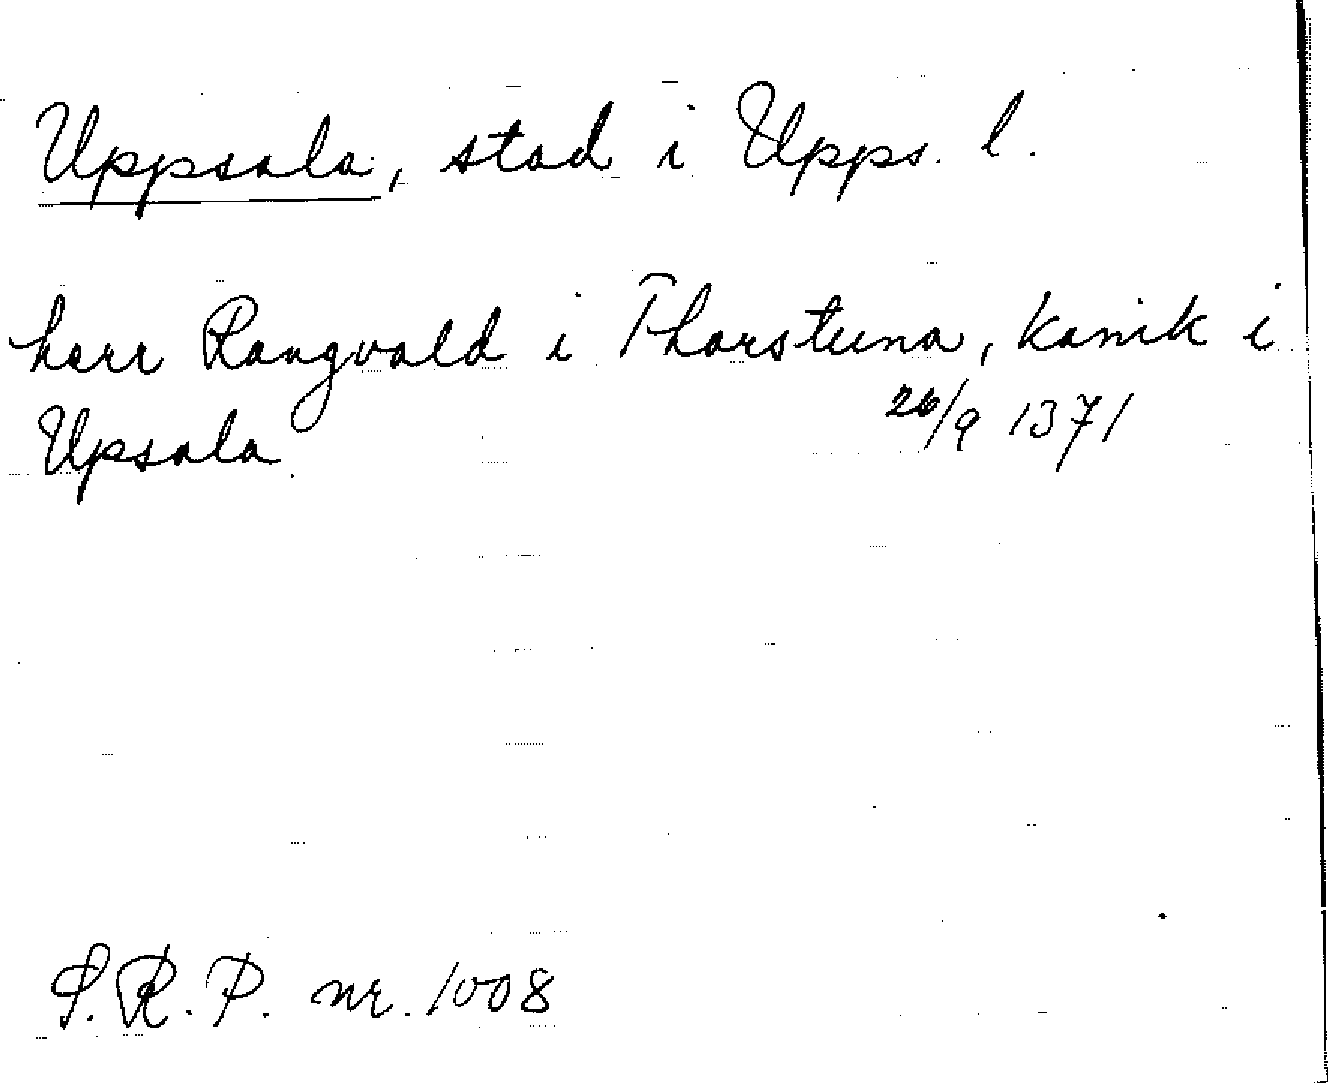 Uppsala, stad i Upps. l.
herr Rangvald i Thorstuna, kanik i
Upsala 26/9 1371
S.R.P. nr. 1008